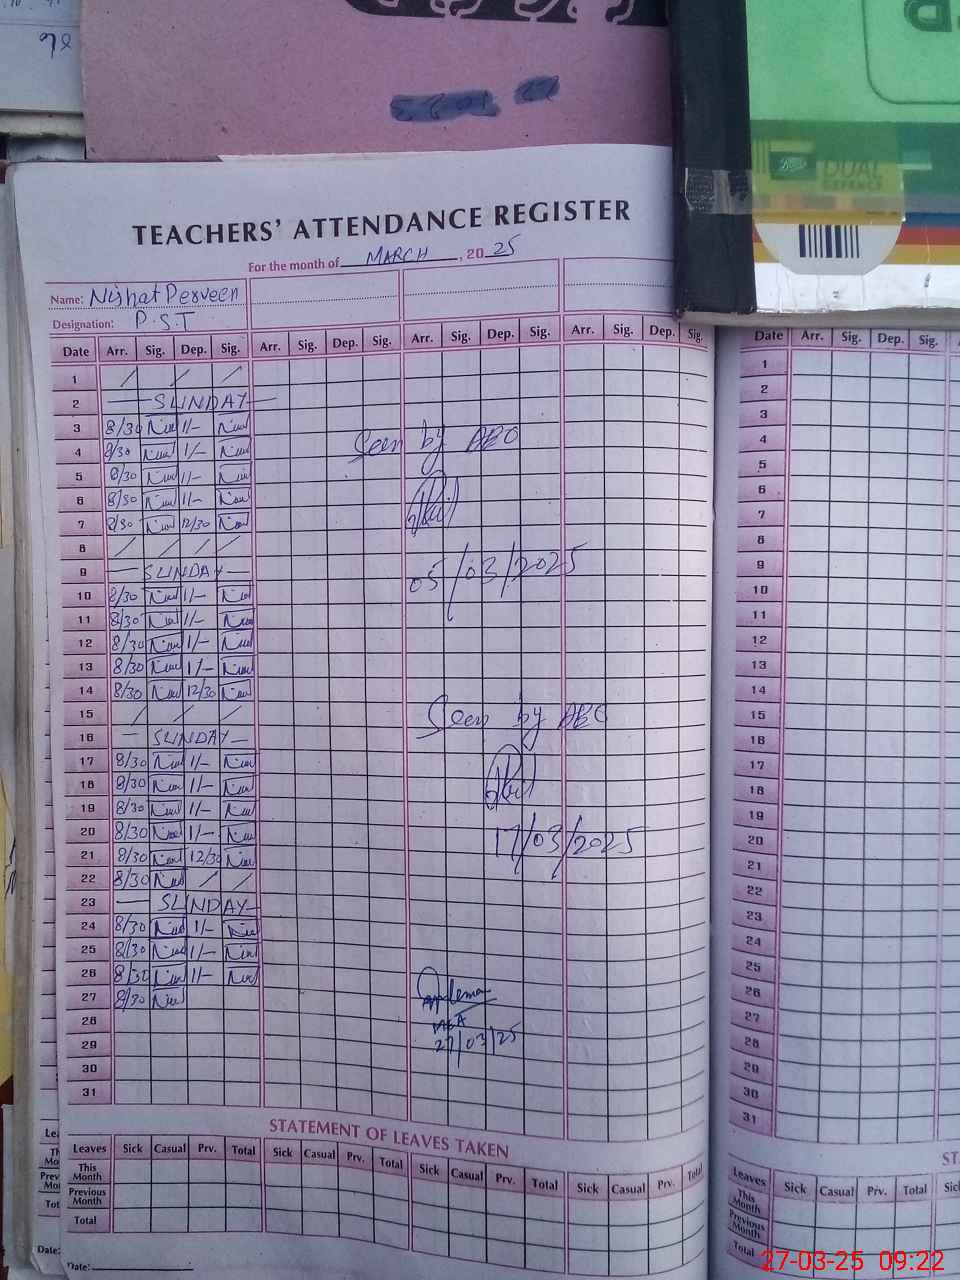 98
TEACHERS' ATTENDANCE REGISTER
For the month of MARCH, 2025
Name: Nishat Perveen
Designation: P.S.T
Date Arr. Sig. Dep. Sig. Arr. Sig. Dep. Sig. Arr. Sig. Dep. Sig. Arr. Sig. Dep. Sig.
1 / / /
2 — SUNDAY —
3 8/30 1/-
4 8/30 1/-
5 8/30 1/-
6 8/30 1/-
7 8/30 12/30
8 / / / /
9 — SUNDAY —
10 8/30 1/-
11 8/30 1/-
12 8/30 1/-
13 8/30 1/-
14 8/30 12/30
15 / / /
16 — SUNDAY —
17 8/30 1/-
18 8/30 1/-
19 8/30 1/-
20 8/30 1/-
21 8/30 12/30
22 8/30 / /
23 — SUNDAY —
24 8/30 1/-
25 8/30 1/-
26 8/30 1/-
27 8/30
28
29
30
31
Seen by
05/03/2025
Seen by
17/03/2025
27/03/25
STATEMENT OF LEAVES TAKEN
Leaves Sick Casual Prv. Total Sick Casual Prv. Total Sick Casual Prv. Total Sick Casual Prv. Total
This Month
Previous Month
Total
Date:
DUAL
DEFENCE
Date Arr. Sig. Dep. Sig.
1
2
3
4
5
6
7
8
9
10
11
12
13
14
15
16
17
18
19
20
21
22
23
24
25
26
27
28
29
30
31
Leaves Sick Casual Prv. Total
This Month
Previous Month
Total
27-03-25 09:22